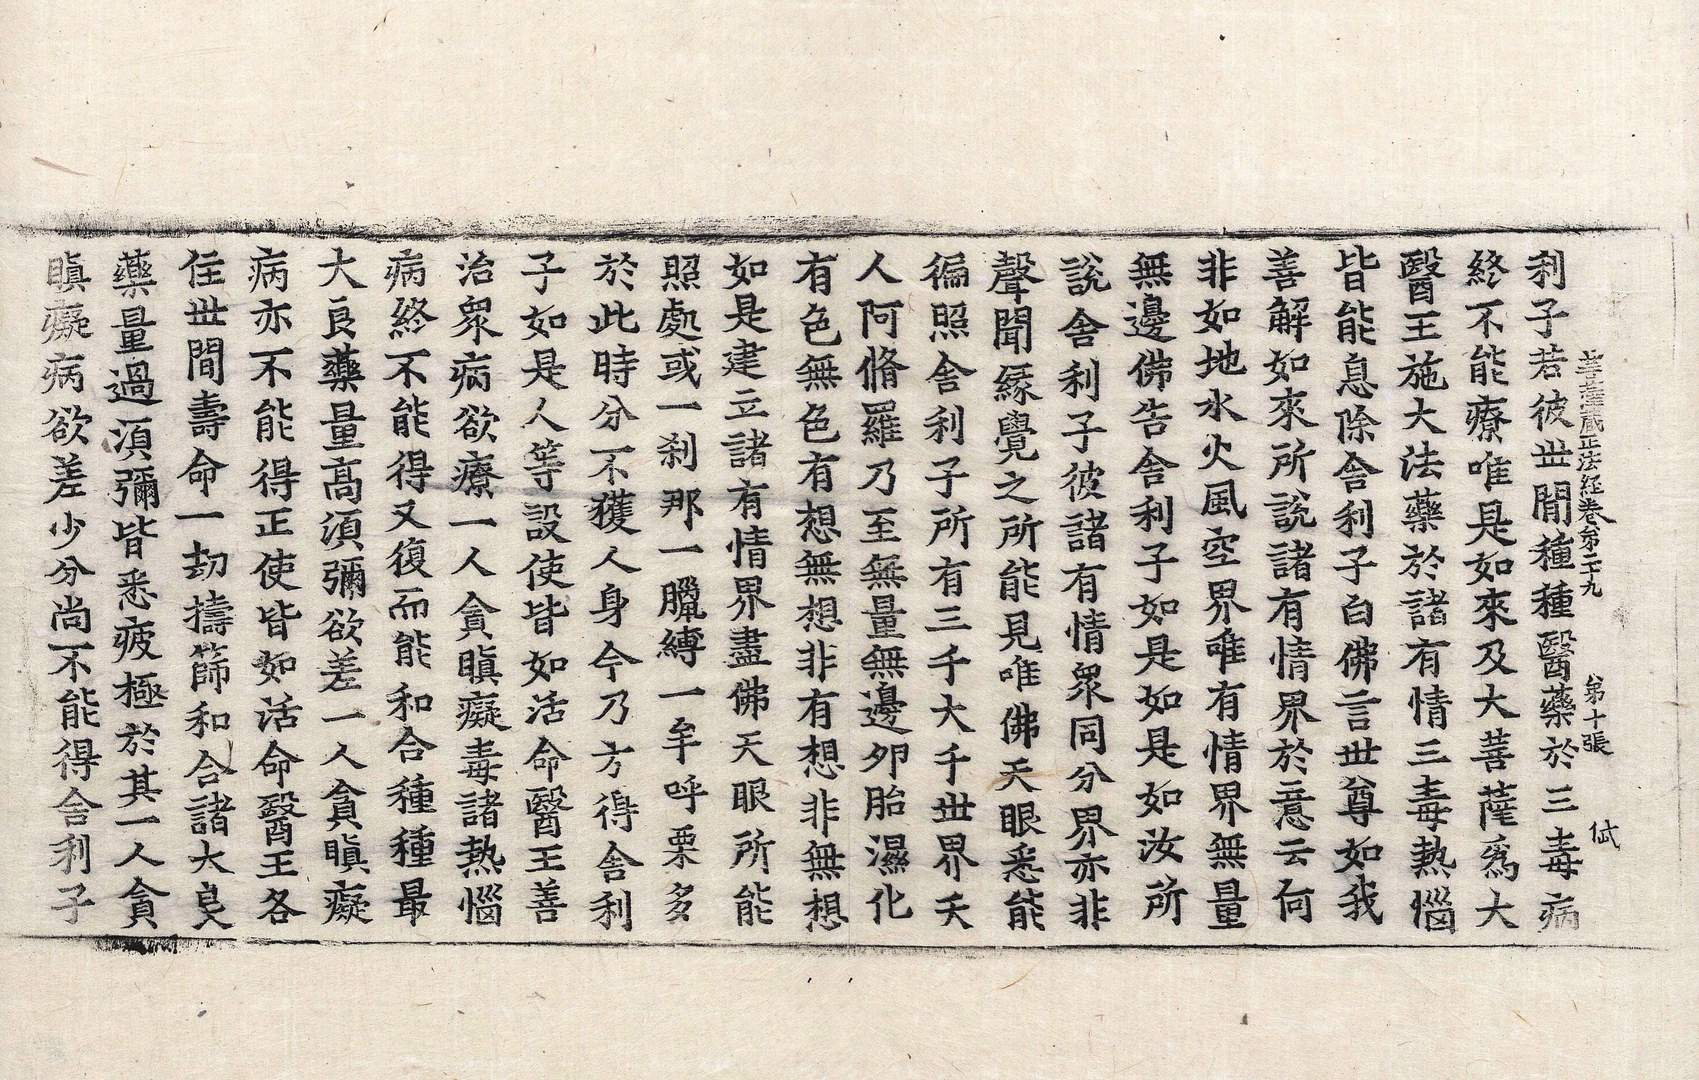 菩薩藏正法經卷第二十九 第十張 弑
利子若彼世間種種醫藥於三毒病
終不能療唯是如來及大菩薩爲大
醫王施大法藥於諸有情三毒熱惱
皆能息除舍利子白佛言世尊如我
善解如來所說諸有情界於意云何
非如地水火風空界唯有情界無量
無邊佛告舍利子如是如是如汝所
說舍利子彼諸有情衆同分界亦非
聲聞緣覺之所能見唯佛天眼悉能
徧照舍利子所有三千大千世界天
人阿脩羅乃至無量無邊卵胎濕化
有色無色有想無想非有想非無想
如是建立諸有情界盡佛天眼所能
照處或一刹那一臘縛一牟呼栗多
於此時分不獲人身今乃方得舍利
子如是人等設使皆如活命醫王善
治衆病欲療一人貪瞋癡毒諸熱惱
病終不能得又復而能和合種種最
大良藥量高須彌欲差一人貪瞋癡
病亦不能得正使皆如活命醫王各
住世間壽命一劫擣篩和合諸大良
藥量過須彌皆悉疲極於其一人貪
瞋癡病欲差少分尚不能得舍利子